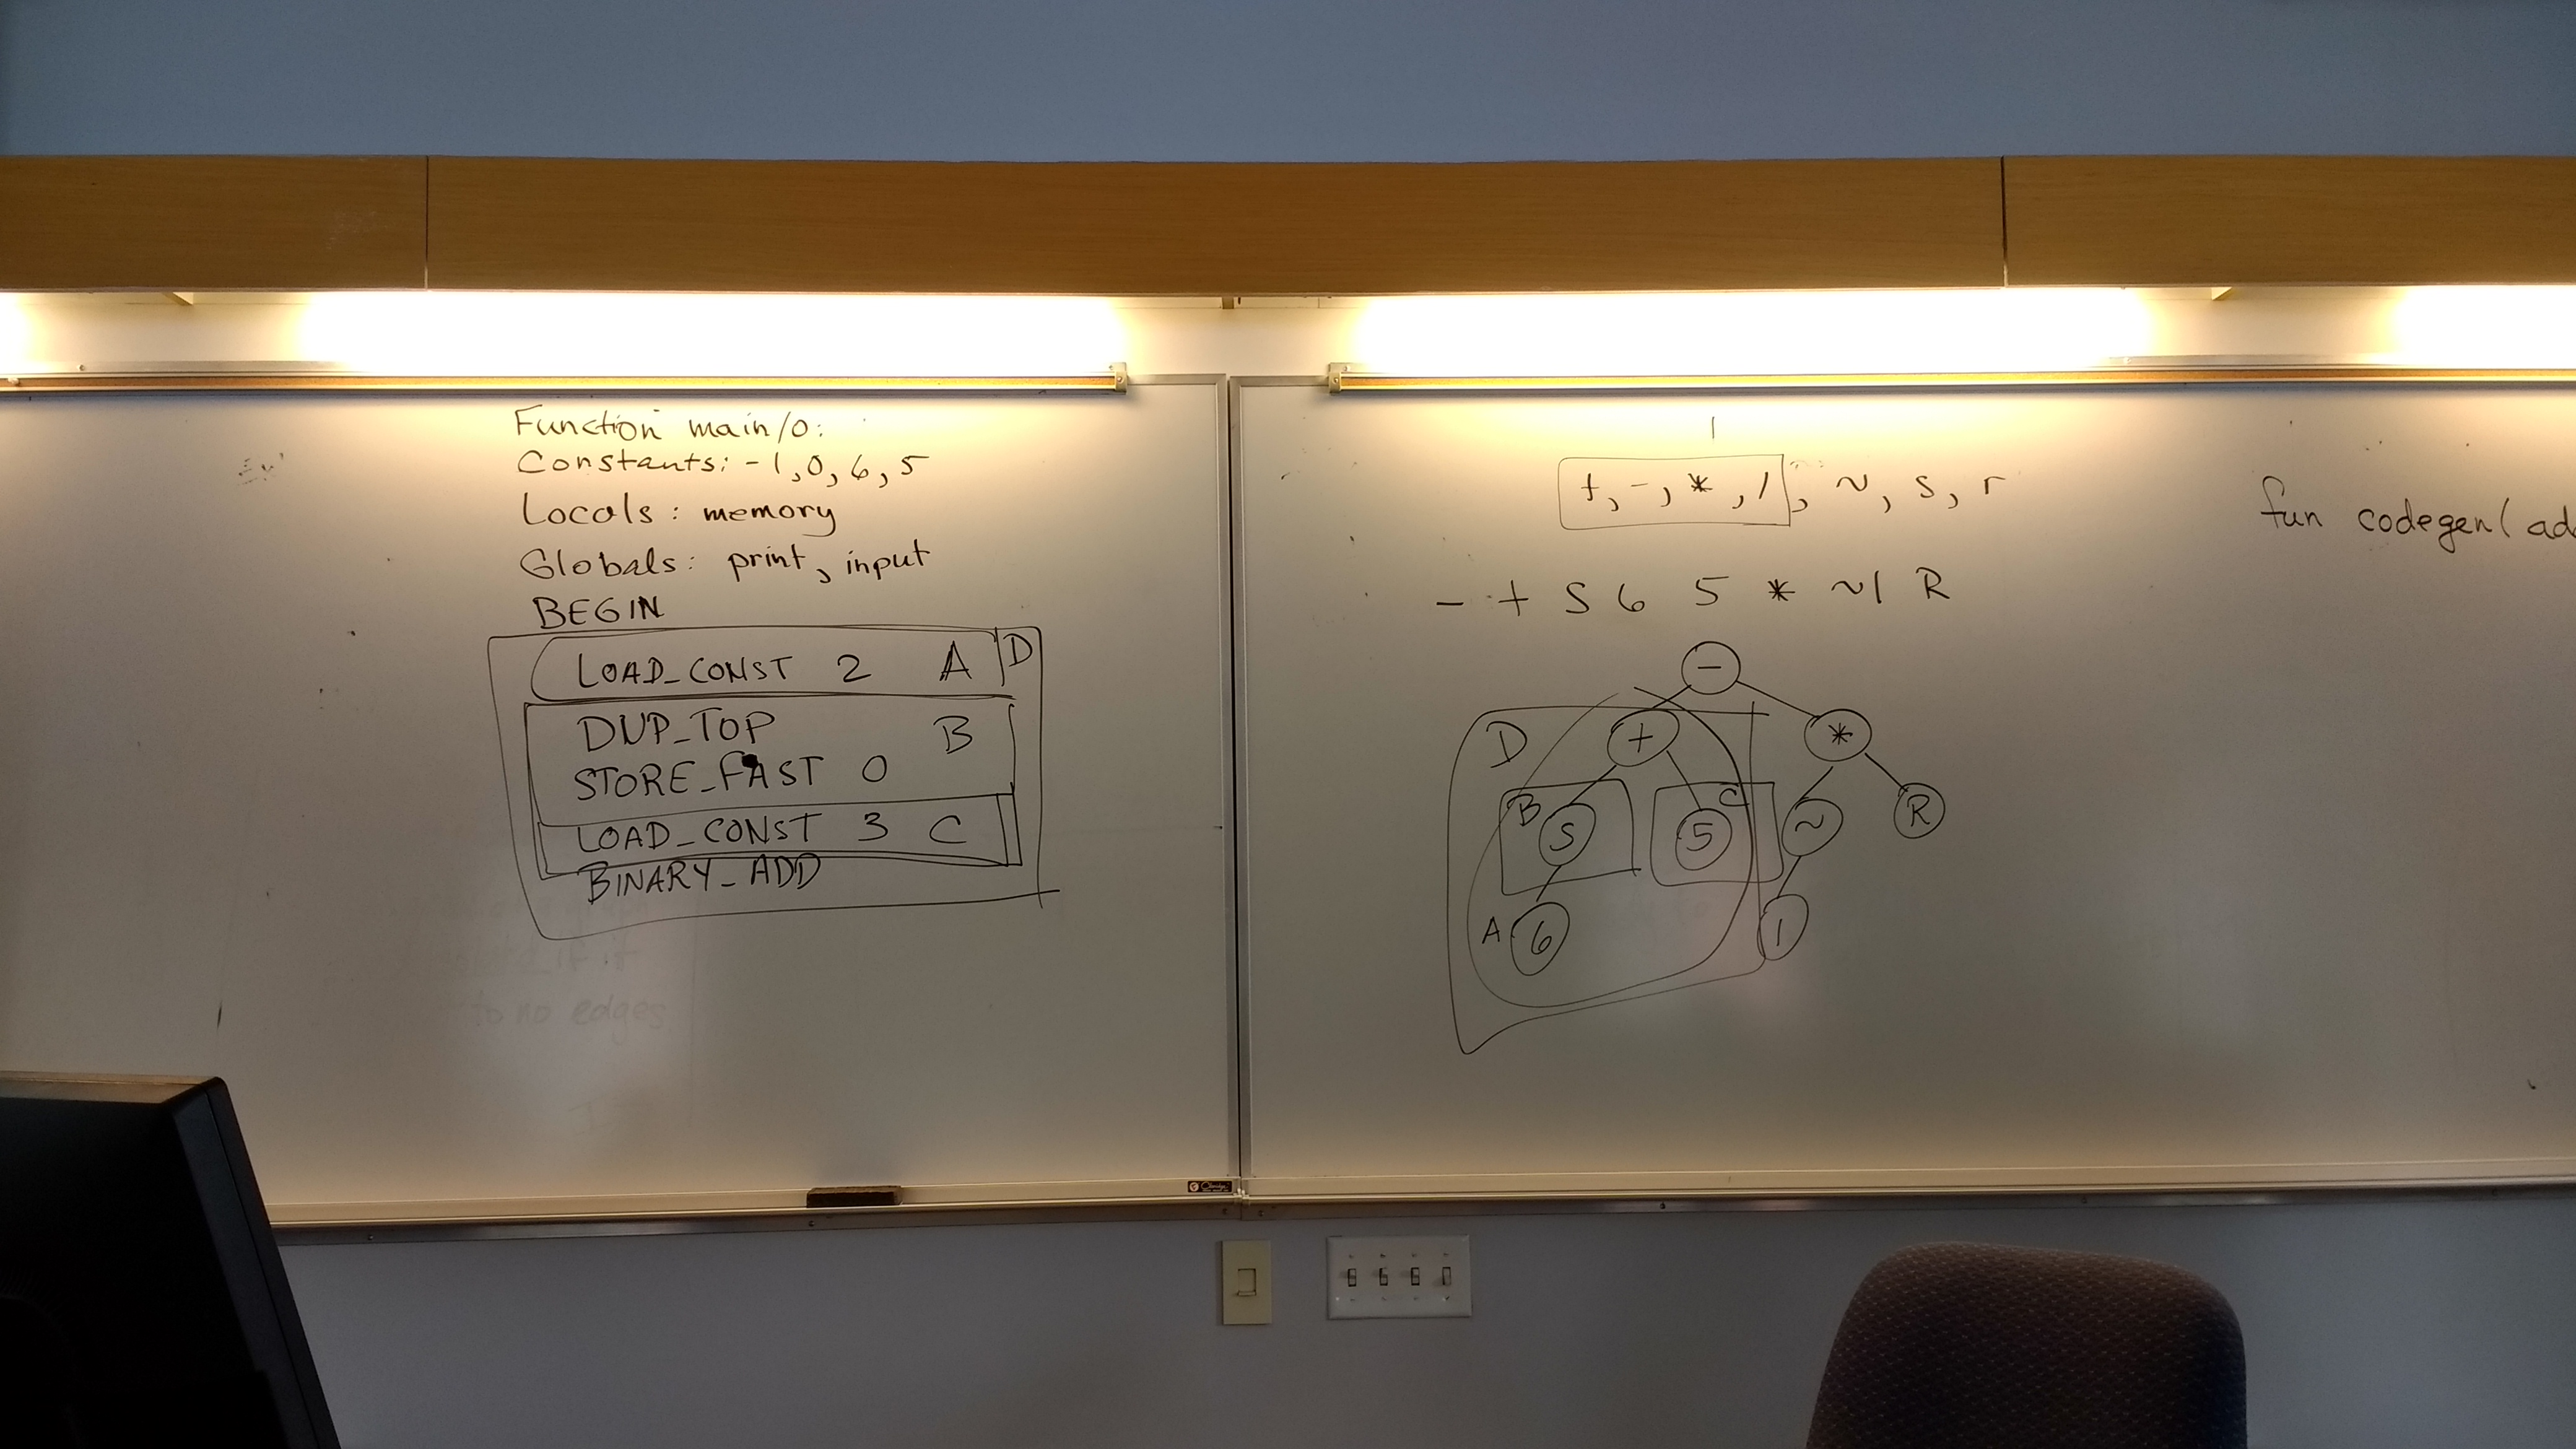 Function main/0:
Constants: -1, 0, 6, 5
Locals: memory
Globals: print, input
BEGIN
LOAD_CONST 2 A D
DUP_TOP B
STORE_FAST 0
LOAD_CONST 3 C
BINARY_ADD
to no edges
+, -, *, /, ~, s, r
- + S 6 5 * ~1 R
-
D + *
B S C 5 ~ R
A 6 1
fun codegen(ad